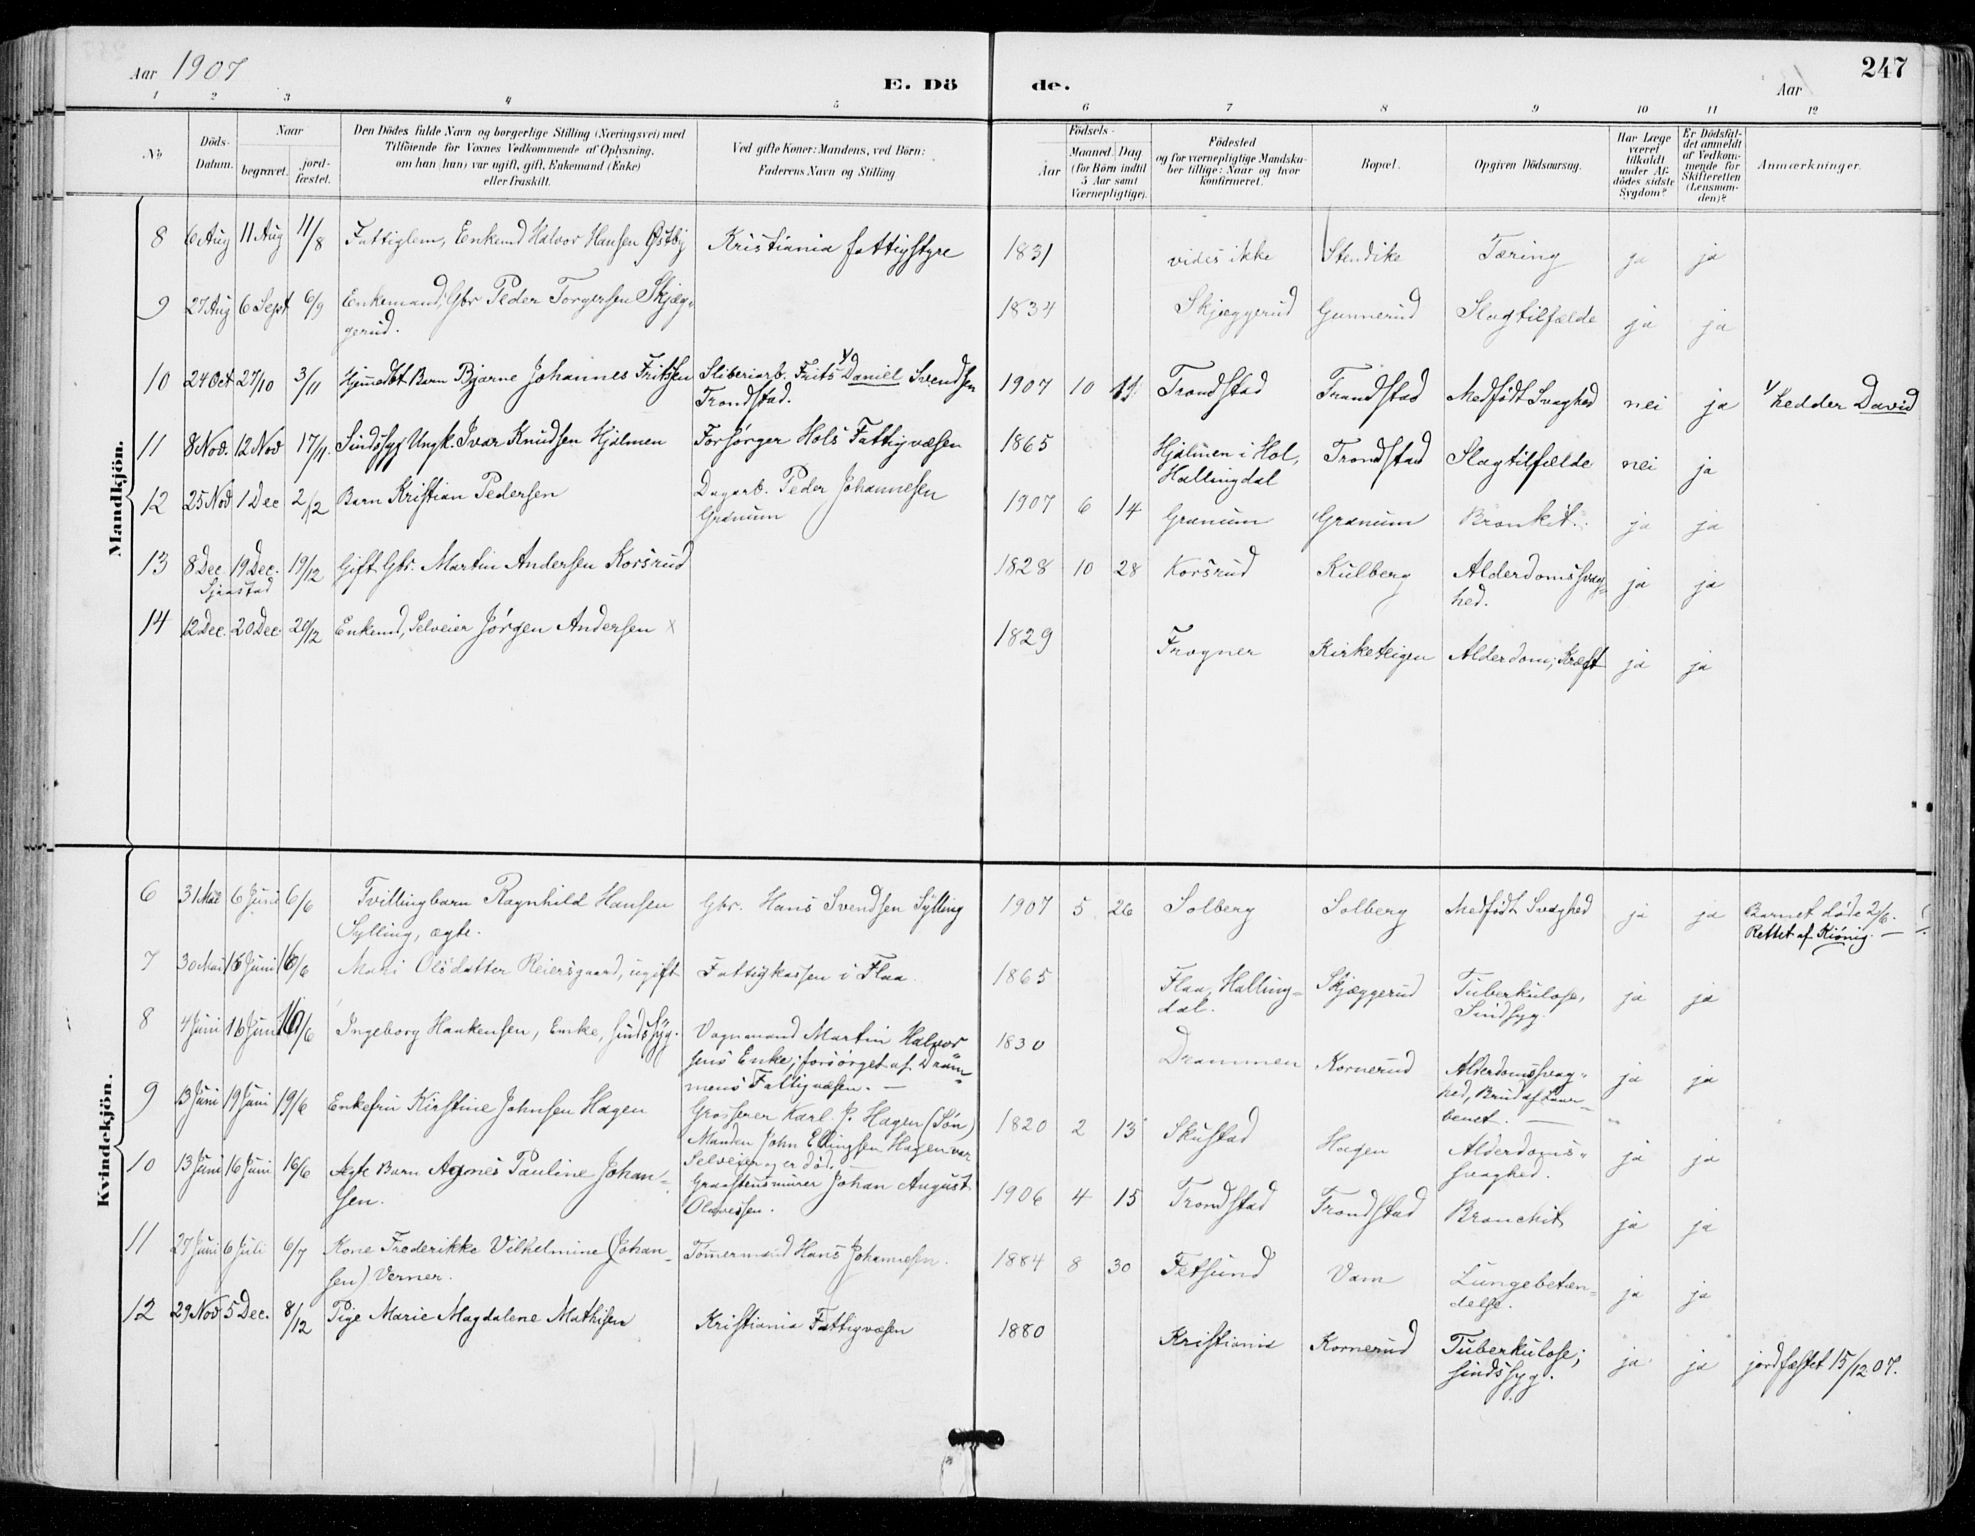 Aar 1907
E. Dö de.
247
Aar
1 2 3 4 5 6 7 8 9 10 11 12
No
Döds-Datum.
Naar
begravet.
jord-fæstet.
Den Dödes fulde Navn og borgerlige Stilling (Næringsvei) med
Tilföiende for Voxnes Vedkommende af Oplysning,
om han (hun) var ugift, gift, Enkemand (Enke)
eller fraskilt.
Ved gifte Koner: Mandens, ved Börn:
Faderens Navn og Stilling
Födsels-
Aar
Maaned Dag
(for Börn indtil
5 Aar samt
Værnepligtige).
Födested
og for værnepligtige Mandska-
ber tillige: Naar og hvor
konfirmeret.
Bopæl.
Opgiven Dödsaarsag.
Har Læge
været
tilkaldt
under Af-
dödes sidste
Sygdom?
Er Dödsfal-
det anmeldt
af Vedkom-
mende for
Skifteretten
(Lensman-
den)?
Anmærkninger.
Mandkjön.
8 6 Aug 11 Aug 11/8 Fattiglem, Enkemd Halvor Hansen Østby Kristiania fattigstyre 1831 vides ikke Stendike Tæring ja ja
9 27 Aug 6 Sept 6/9 Enkemand, Gbr Peder Torgersen Skjæg-
gerud. 1834 Skjæggerud Gunnerud Slagtilfælde ja ja
10 24 Oct 27/10 3/11 Hjmedbt Barn Bjarne Johannes Fritsen Sliberiarb. Frits 1/ Daniel Svendsen
Trondstad. 1907 10 Trondstad Trandstad Medfødt Svaghed nei ja 1/ hedder David
11 8 Nov. 12 Nov 17/11. Sindssyg Ungk. Ivar Knudsen Hjelmen Forsørger Hols Fattigvæsen 1865 Hjelmen i Hol,
Hallingdal Trondstad Slagtilfælde nei ja
12 25 Nov 1 Dec 2/12 Barn Kristian Pedersen Dagarb. Peder Johannesen
Granum 1907 6 14 Granum Granum Bronkit. ja ja
13 8 Dec 19 Dec. 19/12 Gift Gbr. Martin Andersen Korsrud 1828 10 28 Korsrud Kulberg Alderdomssvag-
hed. ja ja
Sjaastad
14 12 Dec. 20 Dec. 20/12 Enkemd, Selveier Jørgen Andersen x 1829 Frogner Kirketeigen Alderdom; Kræft ja ja
Kvindekjön.
6 31 Mai 6 Juni 6/6 Tvillingbarn Ragnhild Hansen
Sylling, ægte. Gbr. Hans Svendsen Sylling 1907 5 26 Solberg Solberg Medfødt Svaghed ja ja Barnet døde 2/6.
Rettet af Kiønig.
7 30 Mai 16 Juni 16/6 Mari Olsdatter Reiersgaard, ugift Fattigkassen i Flaa 1865 Flaa, Halling-
dal. Skjæggerud Tuberkulose,
Sindsyg. ja ja
8 4 Juni 16 Juni 16/6 Ingeborg Haakensen, Enke, sindssyg. Vognmand Martin Halvor
sens Enke; forsørget af Dram-
mens Fattigvæsen. 1830 Drammen Kornerud Alderdomssvag-
hed, Brud af Laar-
benet. ja ja
9 13 Juni 19 Juni 19/6 Enkefru Kirstine Johnsen Hagen Grosserer Karl J. Hagen (Søn)
Manden John Ellingsen Hagen var
Selveier og er død. 1820 2 13 Skustad Hagen Alderdoms-
svaghed. ja ja
10 13 Juni 16 Juni 16/6 Ægte Barn Agnes Pauline Johan-
sen. Graastensmurer Johan August
Olavessen. 1906 4 15 Trondstad Trondstad Bronchit ja ja
11 27 Juni 6 Juli 6/7 Kone Frederikke Vilhelmine (Johan-
sen) Verner. Tømermand Hans Johannesen. 1884 8 30 Fetsund Vam Lungebetæn-
delse. ja ja
12 29 Nov 5 Dec. 8/12 Pige Marie Magdalene Mathisen Kristiania Fattigvæsen 1880 Kristiania Kornerud Tuberkulose;
sindssyg. ja ja jordfæstet 15/12 07.